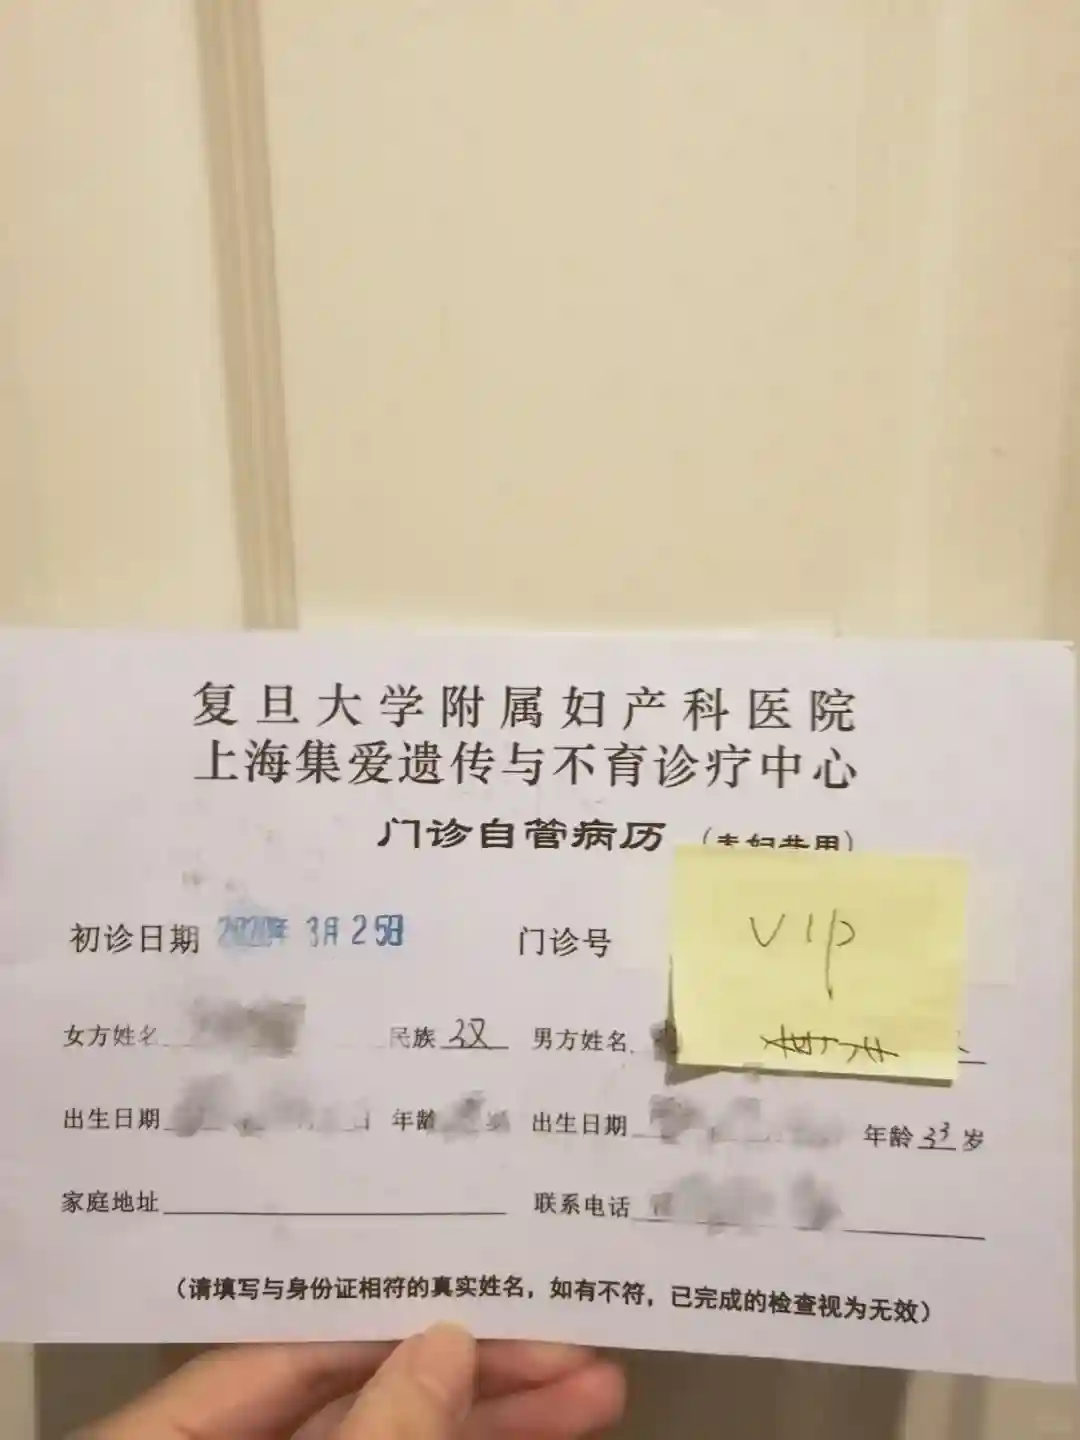 复旦大学附属妇产科医院
上海集爱遗传与不育诊疗中心
门诊自管病历
初诊日期 2020年 3月 25日 门诊号
VIP
女方姓名 民族 汉 男方姓名
出生日期 年龄 岁 出生日期 年龄 33 岁
家庭地址 联系电话
(请填写与身份证相符的真实姓名，如有不符，已完成的检查视为无效)